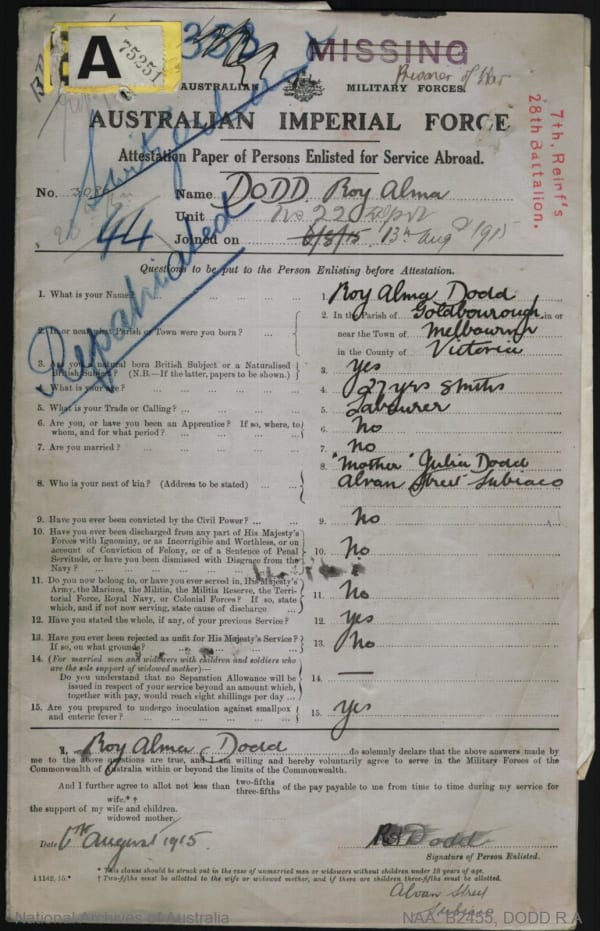 A 75251
353
MISSING
Prisoner of War
AUSTRALIAN MILITARY FORCES.
AUSTRALIAN IMPERIAL FORCE
Attestation Paper of Persons Enlisted for Service Abroad.
7th. Reinf's
28th Battalion.
No. Name DODD Roy Alma
Unit No 22 Depot
44 Joined on 6/8/15. 13th Aug 1915
Repatriated
Questions to be put to the Person Enlisting before Attestation.
1. What is your Name? 1. Roy Alma Dodd
2. In or near what Parish or Town were you born? 2. In the Parish of Goldbourough, in or
near the Town of Melbourne
in the County of Victoria
3. Are you a natural born British Subject or a Naturalised
British Subject? (N.B.—If the latter, papers to be shown.) 3. Yes
4. What is your age? 4. 27 yrs 8 mths
5. What is your Trade or Calling? 5. Labourer
6. Are you, or have you been an Apprentice? If so, where, to
whom, and for what period? 6. No
7. Are you married? 7. No
8. Who is your next of kin? (Address to be stated) 8. "Mother" Julia Dodd
Alvan Street Subiaco
9. Have you ever been convicted by the Civil Power? 9. No
10. Have you ever been discharged from any part of His Majesty's
Forces with Ignominy, or as Incorrigible and Worthless, or on
account of Conviction of Felony, or of a Sentence of Penal
Servitude, or have you been Dismissed with Disgrace from the
Navy? 10. No
11. Do you now belong to, or have you ever served in, His Majesty's
Army, the Marines, the Militia, the Militia Reserve, the Terri-
torial Force, Royal Navy, or Colonial Forces? If so, state
which, and if not now serving, state cause of discharge 11. No
12. Have you stated the whole, if any, of your previous Service? 12. Yes
13. Have you ever been rejected as unfit for His Majesty's Service?
If so, on what grounds? 13. No
14. (For married men and widowers with children and soldiers who
are the sole support of widowed mother)—
Do you understand that no Separation Allowance will be
issued in respect of your service beyond an amount which,
together with pay, would reach eight shillings per day 14. —
15. Are you prepared to undergo inoculation against smallpox
and enteric fever? 15. Yes
I, Roy Alma Dodd do solemnly declare that the above answers made by
me to the above questions are true, and I am willing and hereby voluntarily agree to serve in the Military Forces of the
Commonwealth of Australia within or beyond the limits of the Commonwealth.
And I further agree to allot not less than two-fifths three-fifths of the pay payable to me from time to time during my service for
wife.*†
the support of my wife and children.
widowed mother.
Date 6th August 1915. R A Dodd
Signature of Person Enlisted.
* This clause should be struck out in the case of unmarried men or widowers without children under 18 years of age.
† Two-fifths must be allotted to the wife or widowed mother, and if there are children three-fifths must be allotted.
Alvan Street
Subiaco
National Archives of Australia NAA: B2455, DODD R A